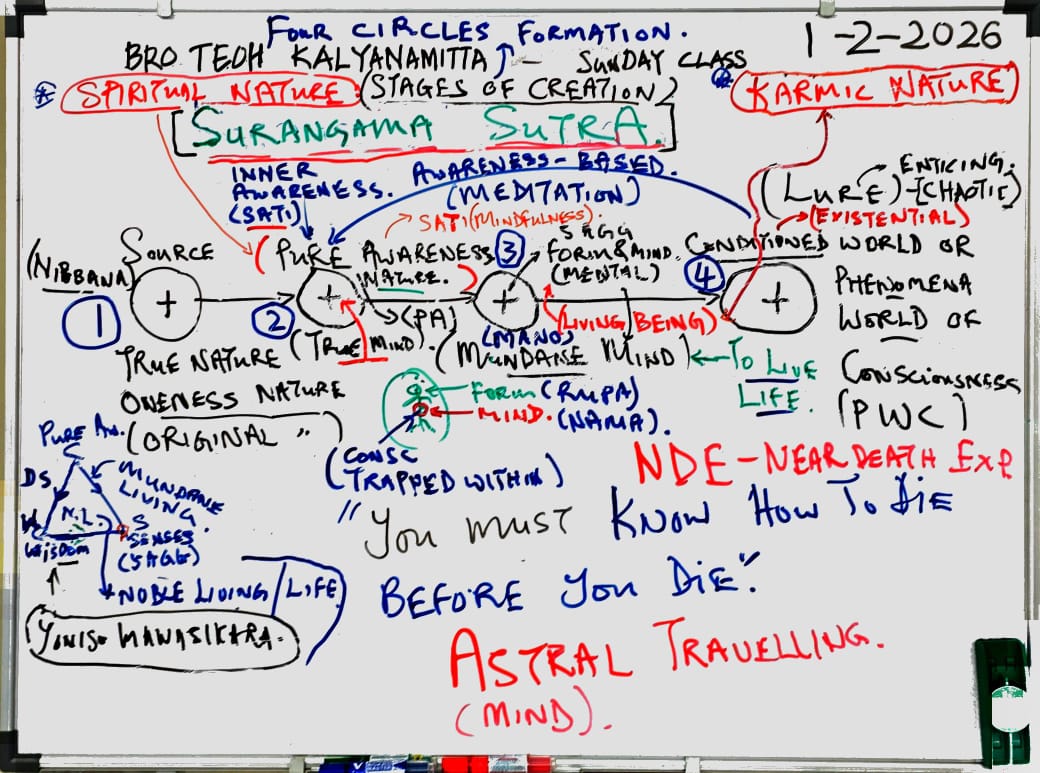 FOUR CIRCLES FORMATION.
1-2-2026
BRO TEOH KALYANAMITTA - SUNDAY CLASS
SPIRITUAL NATURE (STAGES OF CREATION)
KARMIC NATURE
[SURANGAMA SUTRA.]
INNER AWARENESS. (SATI)
AWARENESS-BASED.
(MEDITATION)
ENTICING.
(LURE)-[CHAOTIC]
(EXISTENTIAL)
SATI (MINDFULNESS).
(NIBBANA)
SOURCE
(PURE AWARENESS NATURE.)
(PA)
3
5 AGG
FORM & MIND.
(MENTAL)
CONDITIONED WORLD OR
PHENOMENA
WORLD OF
CONSCIOUSNESS
(PWC)
4
1
2
(LIVING BEING)
TRUE NATURE
(TRUE MIND).
(MANO)
(MUNDANE MIND)
TO LIVE
LIFE.
ONENESS NATURE
(ORIGINAL ")
FORM (RUPA)
MIND. (NAMA).
(CONSC
TRAPPED WITHIN)
PURE AW.
DS
MUNDANE
LIVING.
N.L
W
S
SENSES
(5 AGG)
WISDOM
NOBLE LIVING/LIFE
YONISO MANASIKARA.
NDE-NEAR DEATH EXP
"YOU MUST KNOW HOW TO DIE
BEFORE YOU DIE".
ASTRAL TRAVELLING.
(MIND).